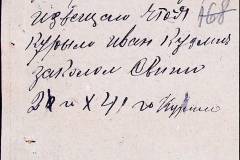 извещаю что я 168
Курыло Иван Кузмич
заколол свиню
24 и X 41 го Курило